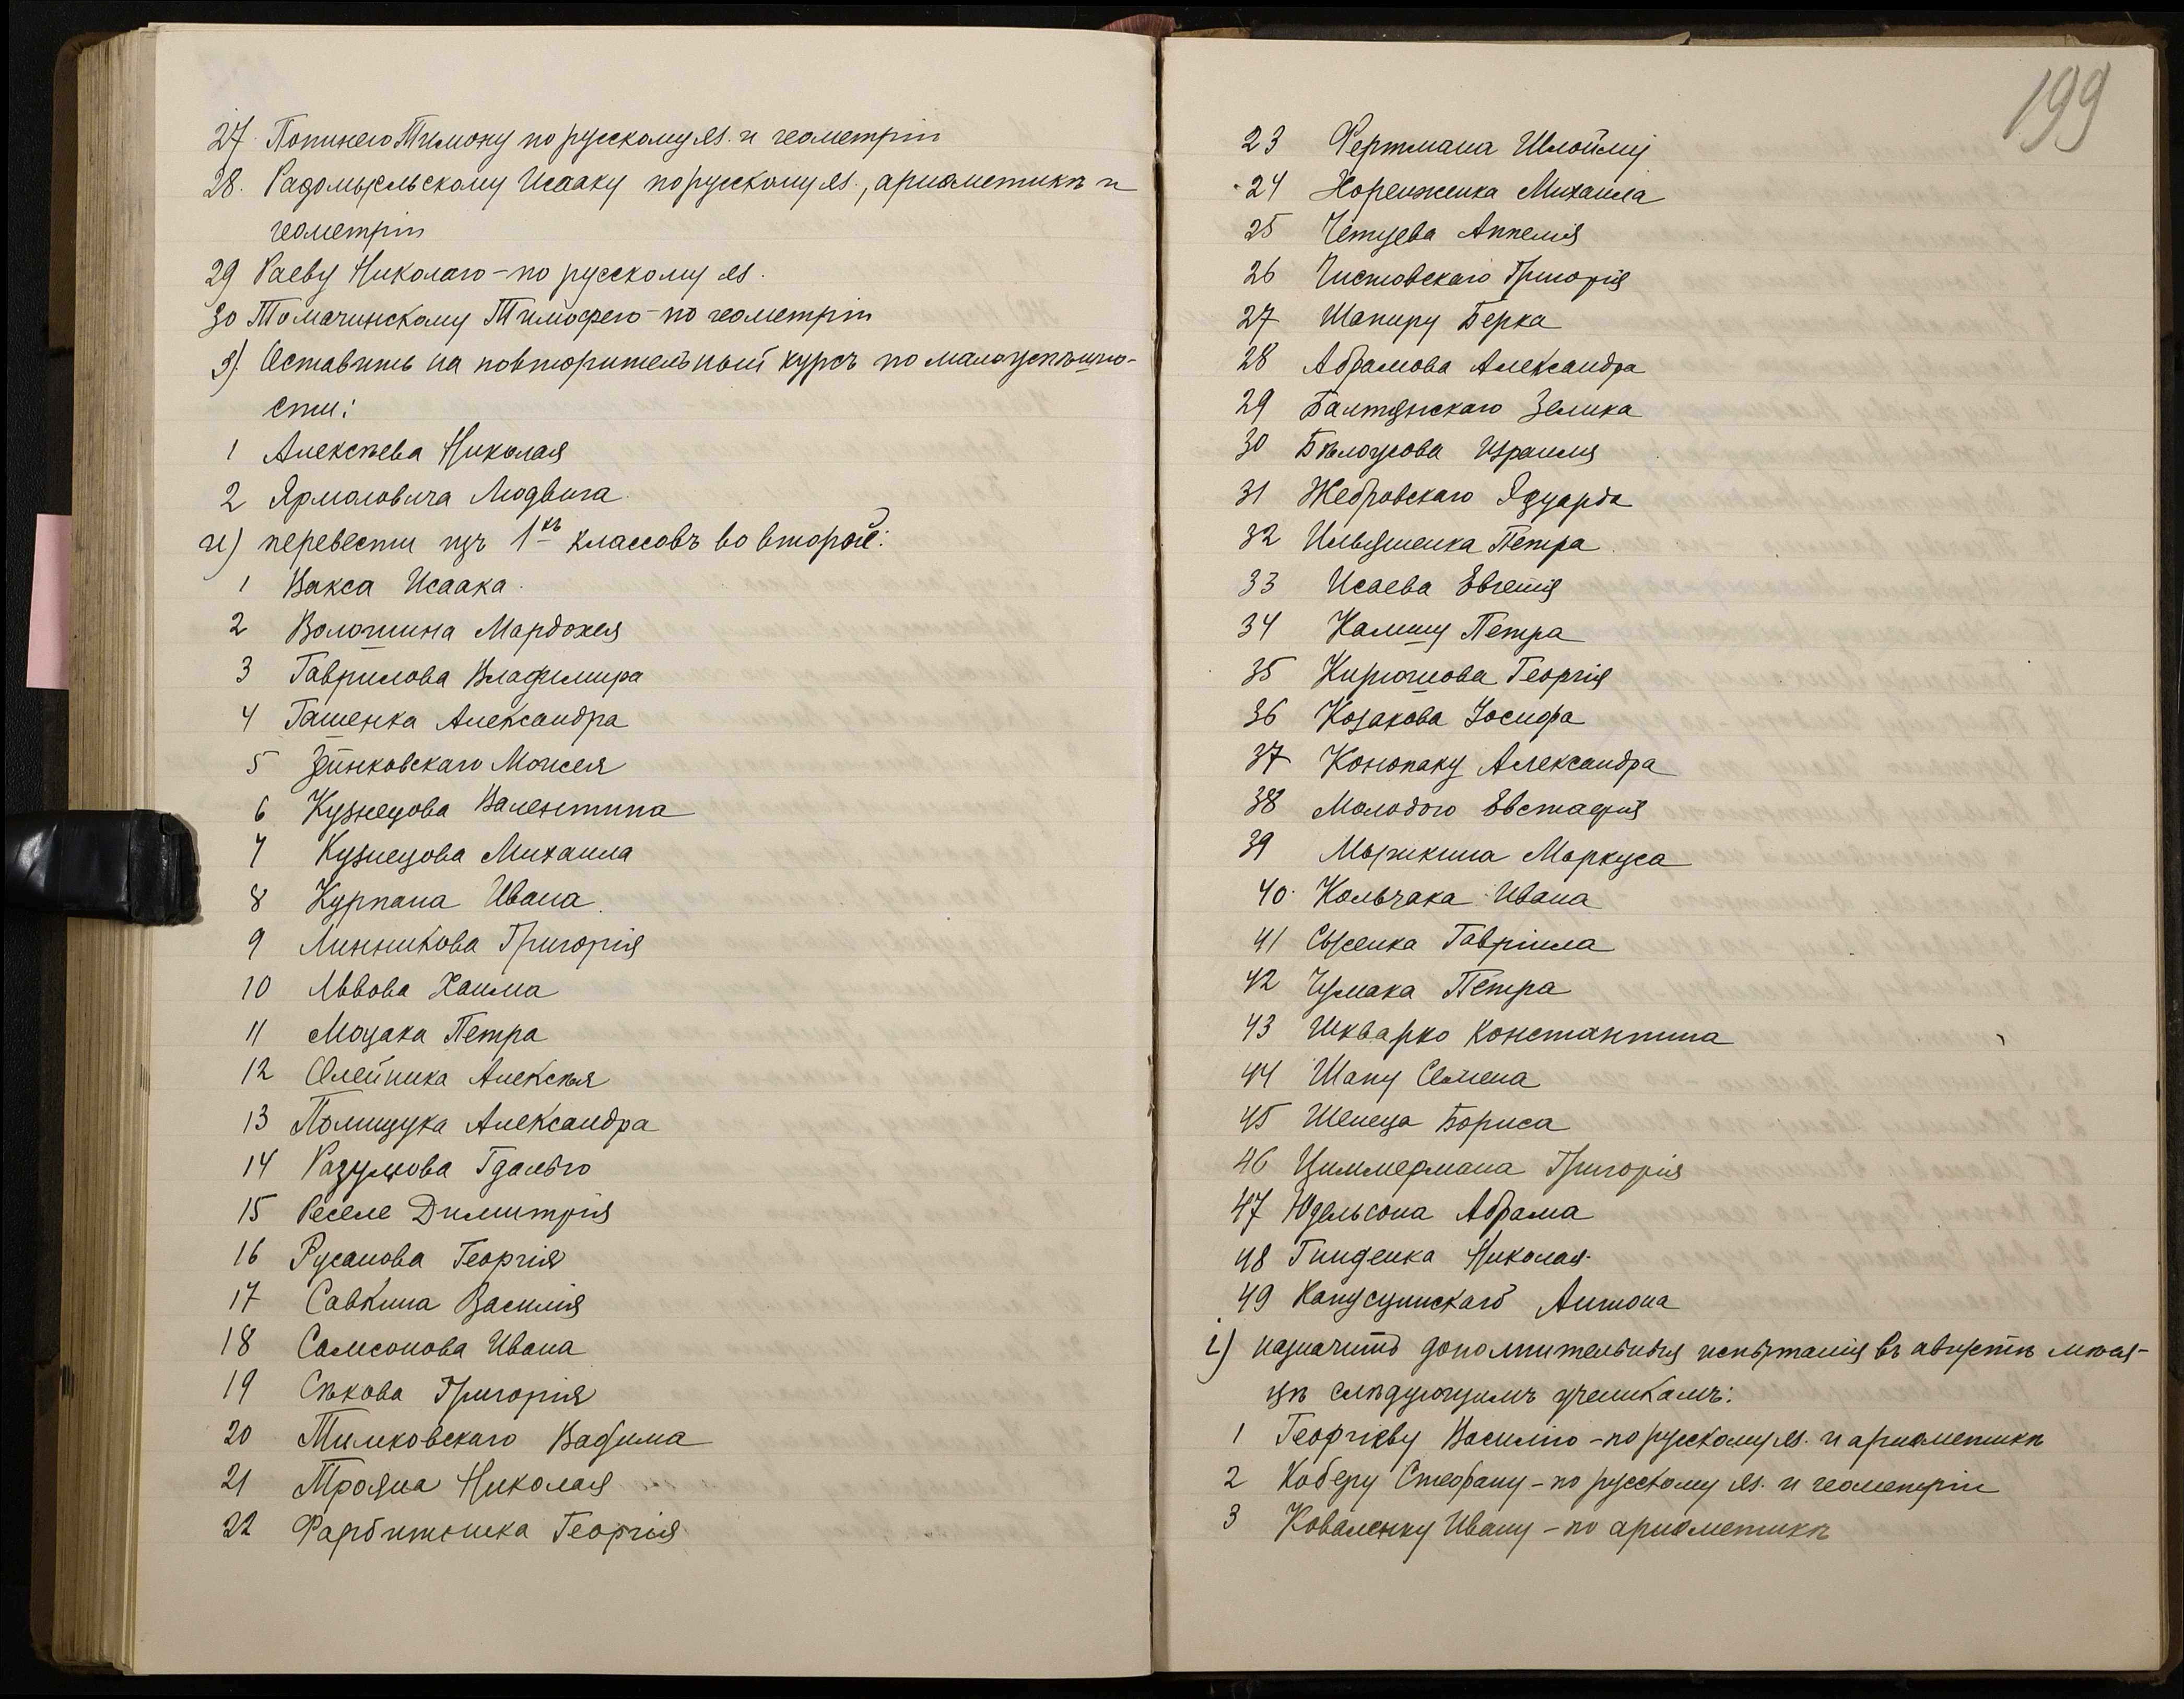 27. Попинего Тимону по русскому яз. и геометріи
28. Радомысльскому Исааку по русскому яз., ариѳметикѣ и
геометріи
29 Раеву Николаю – по русскому яз.
30 Томачинскому Тимофею – по геометріи
з). Оставить на повторительный курсъ по малоуспѣшно-
сти:
1 Алексѣева Николая
2 Ярмоловича Людвига.
и) перевести изъ 1хъ классовъ во второй:
1 Вакса Исаака.
2 Волошина Мардохея
3 Гаврилова Владимира
4 Гашенка Александра
5 Зѣнковскаго Моисея
6 Кузнецова Валентина
7 Кузнецова Михаила
8 Курпана Ивана.
9 Линникова Григорія
10 Львова Хаима
11 Моцака Петра
12 Олейника Алексѣя
13 Полищука Александра
14 Разумова Гдалью
15 Реселе Димитрія
16 Русанова Георгія
17 Савкина Василія
18 Самсонова Ивана
19 Сѣкова Григорія
20 Тимковскаго Вадима
21 Трояна Николая
22 Фарбитника Георгія
199
23 Фертмана Шлойму
24 Хоренженка Михаила
25 Четуева
26 Чистовскаго Григорія
27 Шапиру Берка
28 Абрамова Александра
29 Балтянскаго Зелика
30 Бѣлоусова Израиля
31 Жебровскаго Эдуарда
32 Ильяшенка Петра.
33 Исаева Евгенія
34 Калишу Петра
35 Кирюшова Георгія
36 Козакова Іосифа
37 Конопаку Александра
38 Молодого Евстафія
39 Маркуса
40. Кольчака Ивана
41 Сысенка Гавріила
42 Чумака Петра
43 Шкварко Константина
44 Шапу Семена
45 Шепеца Бориса
46 Циммермана Григорія
47 Юдельсона Абрама
48 Гниденка Николая.
49 Капусцинскаго Антона
і) назначить дополнительныя испытанія въ августѣ мѣся-
цѣ слѣдующимъ ученикамъ:
1 Георгіеву Василію – по русскому яз. и ариѳметикѣ
2 Коберу Стефану – по русскому яз. и геометріи
3 Коваленку Ивану – по ариѳметикѣ